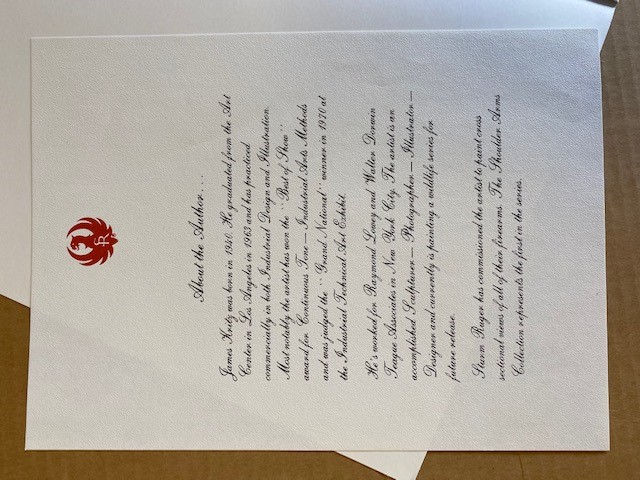 SR
About the Author....
James Kritz was born in 1940. He graduated from the Art
Center in Los Angeles in 1963 and has practiced
commercially in both Industrial Design and Illustration.
Most notably the artist has won the "Best of Show"
award for Continuous Tone — Industrial Arts Methods
and was judged the "Grand National" winner in 1970 at
the Industrial Technical Art Exhibit.
He's worked for Raymond Lowey and Walter Dorwin
Teague Associates in New York City. The artist is an
accomplished Sculpturer — Photographer — Illustrator —
Designer and currently is painting a wildlife series for
future release.
Sturm Ruger has commissioned the artist to paint cross
sectional views of all of their firearms. The Shoulder Arms
Collection represents the first in the series.